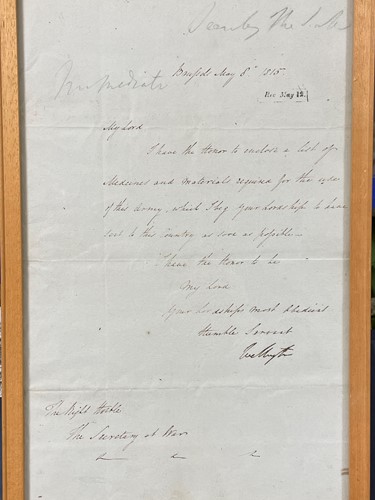 Immediate
Brussels May 8. 1815.
Rec May 12.
My Lord
I have the Honor to enclose a List of
Medicines and materials required for the use
of this Army, which I beg your Lordship to have
sent to this Country as soon as possible—
I have the Honor to be
My Lord
Your Lordships most obedient
Humble Servant
Wellington
The Right Honble
The Secretary at War